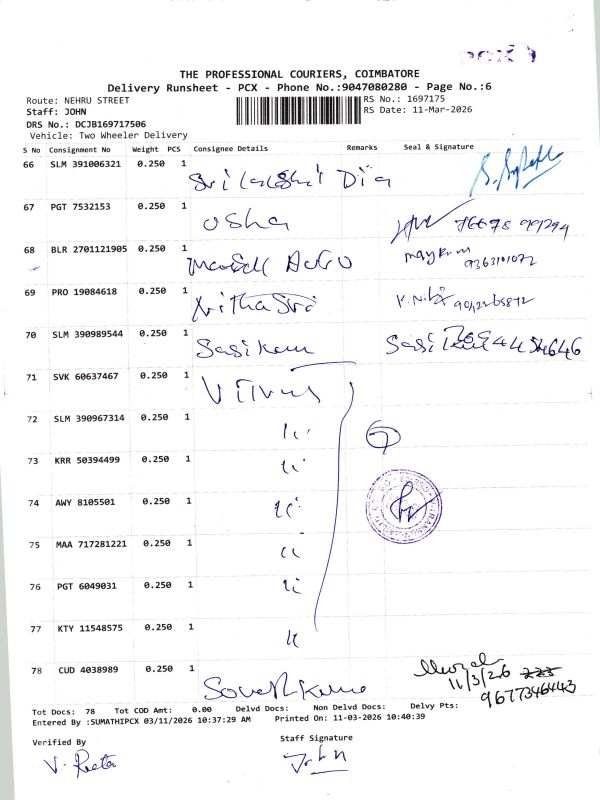 THE PROFESSIONAL COURIERS, COIMBATORE
Delivery Runsheet - PCX - Phone No.:9047080280 - Page No.:6
Route: NEHRU STREET
RS No.: 1697175
Staff: JOHN
RS Date: 11-Mar-2026
DRS No.: DCJB169717506
Vehicle: Two Wheeler Delivery
S No Consignment No Weight PCS Consignee Details Remarks Seal & Signature
66 SLM 391006321 0.250 1
67 PGT 7532153 0.250 1 Usha
68 BLR 2701121905 0.250 1
69 PRO 19084618 0.250 1
70 SLM 390989544 0.250 1 Sasikum Sasi
71 SVK 60637467 0.250 1
72 SLM 390967314 0.250 1 ''
73 KRR 50394499 0.250 1 ''
74 AWY 8105501 0.250 1 ''
75 MAA 717281221 0.250 1 ''
76 PGT 6049031 0.250 1 ''
77 KTY 11548575 0.250 1 ''
78 CUD 4038989 0.250 1 11/3/26
9677346443
Tot Docs: 78 Tot COD Amt: 0.00 Delvd Docs: Non Delvd Docs: Delvy Pts:
Entered By :SUMATHIPCX 03/11/2026 10:37:29 AM Printed On: 11-03-2026 10:40:39
Verified By
Staff Signature
V. Reeta
John